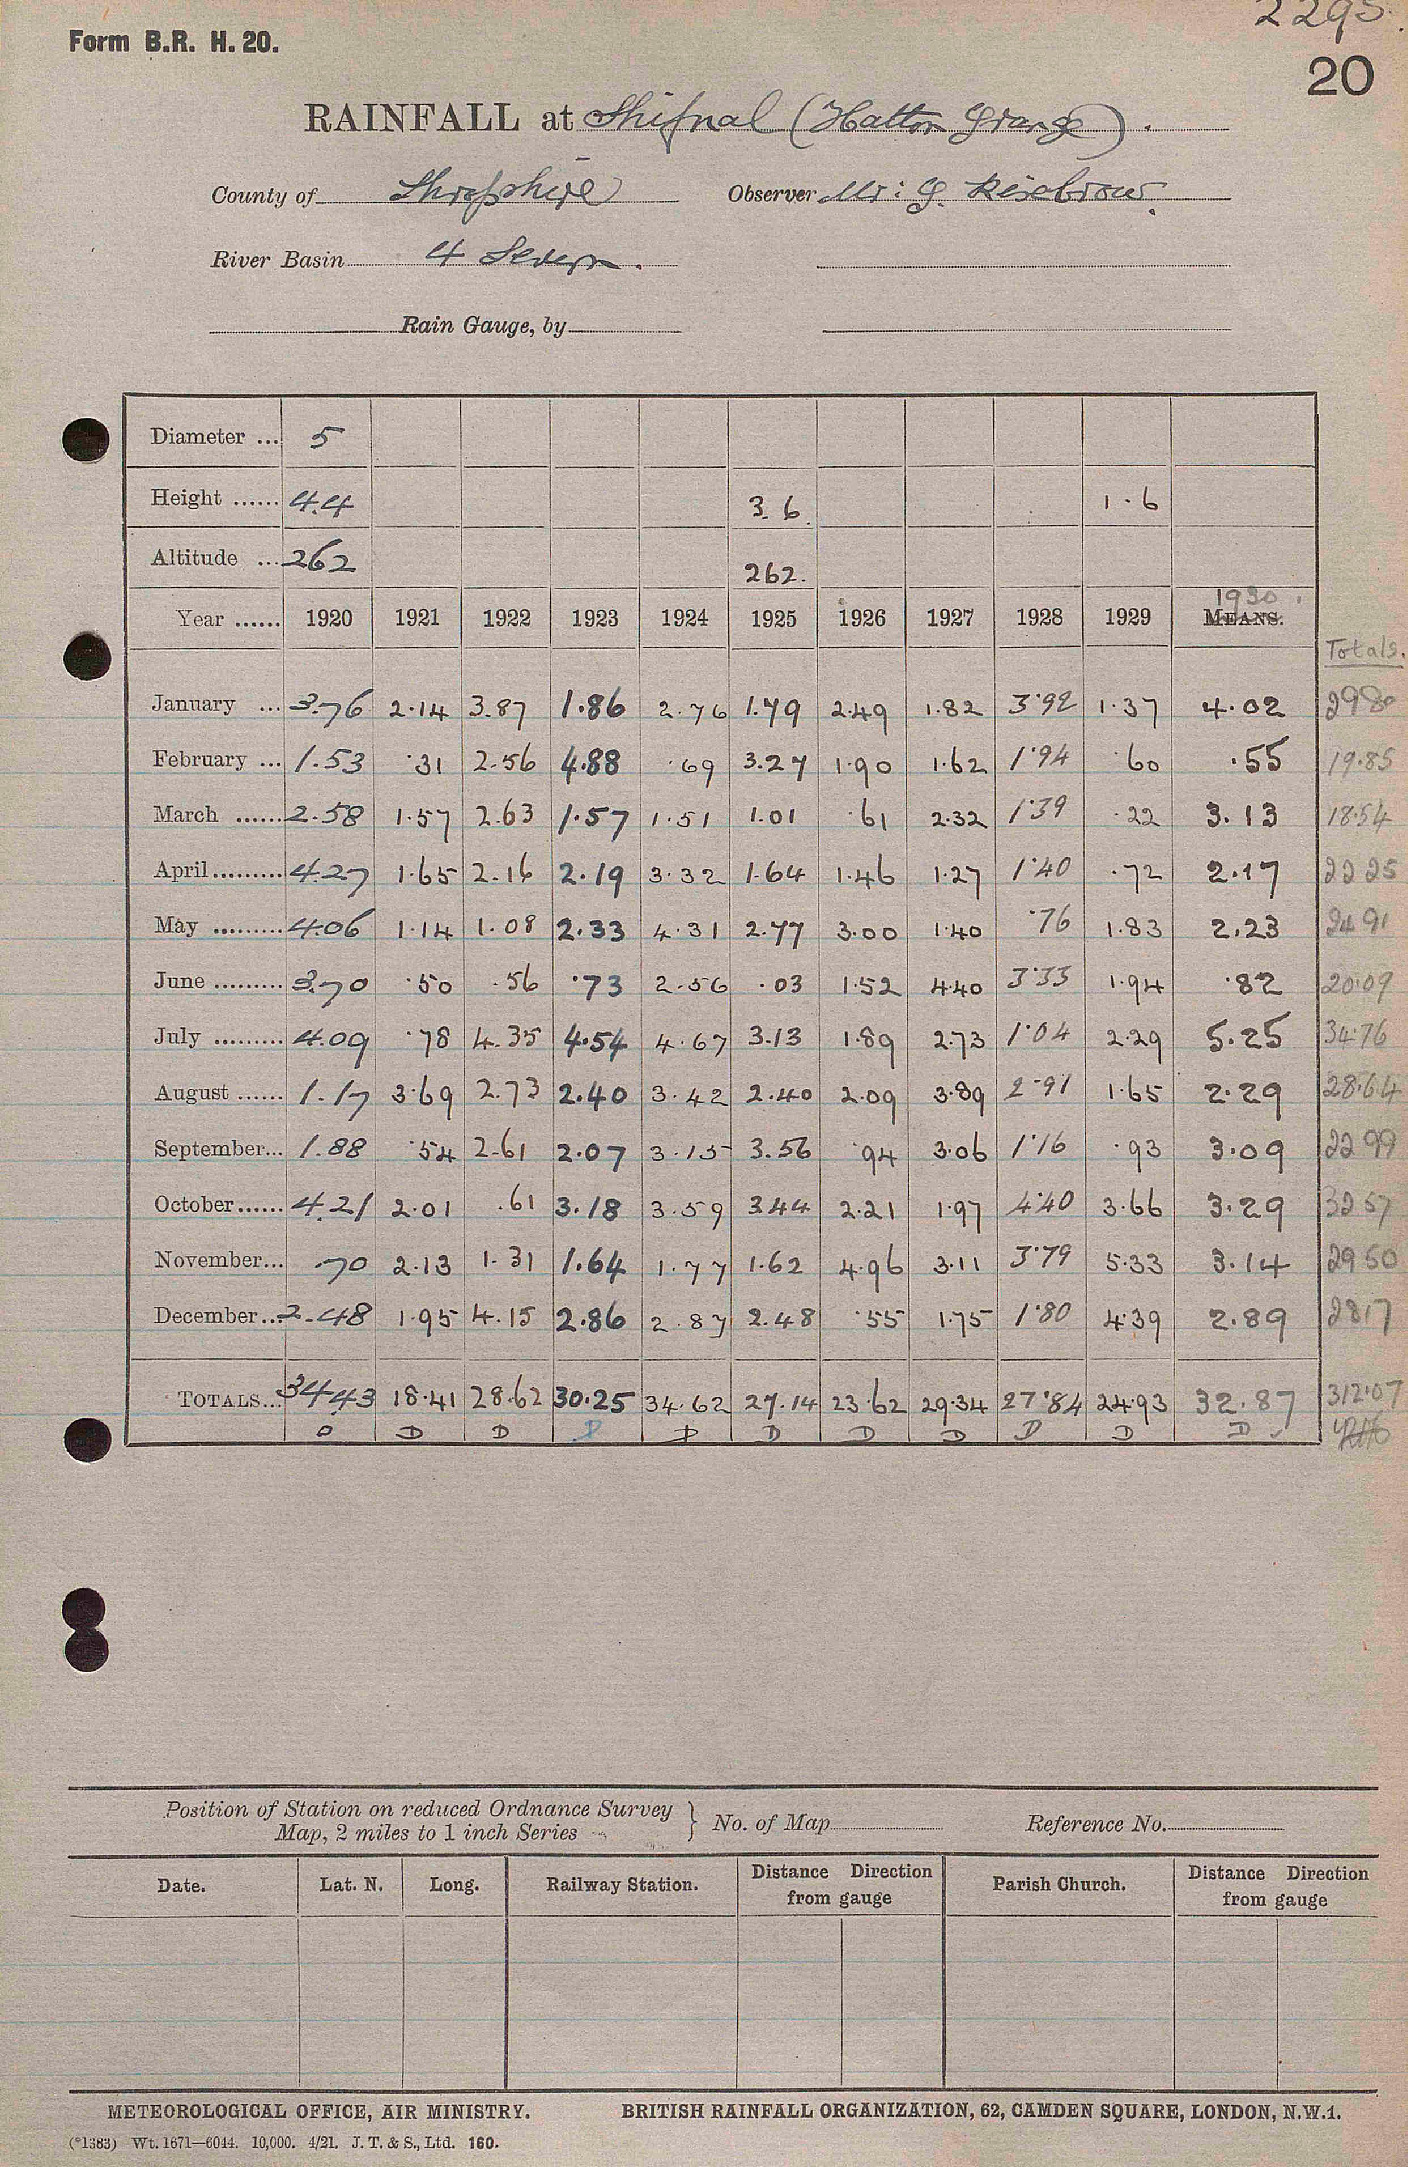 2295.
Form B.R. H. 20.
20
RAINFALL at Shifnal (Hatton Grange).
County of Shropshire Observer Mr: G.
River Basin 4 Severn.
Rain Gauge, by
Diameter ... 5
Height ...... 4.4 3.6 1.6
Altitude ... 262 262.
1930.
Year ...... 1920 1921 1922 1923 1924 1925 1926 1927 1928 1929 MEANS.
Totals.
January ... 3.76 2.14 3.87 1.86 2.76 1.79 2.49 1.82 3.92 1.37 4.02 2980
February ... 1.53 .31 2.56 4.88 .69 3.27 1.90 1.62 1.94 .60 .55 19.85
March ...... 2.58 1.57 2.63 1.57 1.51 1.01 .61 2.32 1.39 .22 3.13 18.54
April ......... 4.27 1.65 2.16 2.19 3.32 1.64 1.46 1.27 1.40 .72 2.17 22 25
May ......... 4.06 1.14 1.08 2.33 4.31 2.77 3.00 1.40 .76 1.83 2.23 24 91
June ......... 3.70 .50 .56 .73 2.56 .03 1.52 4.40 3.33 1.94 .82 20.09
July ......... 4.09 .78 4.35 4.54 4.67 3.13 1.89 2.73 1.04 2.29 5.25 34.76
August ...... 1.17 3.69 2.73 2.40 3.42 2.40 2.09 3.89 2.91 1.65 2.29 28.64
September... 1.88 .54 2.61 2.07 3.15 3.56 .94 3.06 1.16 .93 3.09 22 99
October...... 4.21 2.01 .61 3.18 3.59 3.44 2.21 1.97 4.40 3.66 3.29 32 57
November... .70 2.13 1.31 1.64 1.77 1.62 4.96 3.11 3.79 5.33 3.14 29 50
December... 2.48 1.95 4.15 2.86 2.87 2.48 .55 1.75 1.80 4.39 2.89 2817
TOTALS... 34.43 18.41 28.62 30.25 34.62 27.14 23.62 29.34 27.84 24.93 32.87 312.07
D D D D D D D D D D D
Position of Station on reduced Ordnance Survey
Map, 2 miles to 1 inch Series } No. of Map Reference No.
Date. Lat. N. Long. Railway Station. Distance Direction from gauge Parish Church. Distance Direction from gauge
METEOROLOGICAL OFFICE, AIR MINISTRY. BRITISH RAINFALL ORGANIZATION, 62, CAMDEN SQUARE, LONDON, N.W.1.
(*1383) Wt. 1671—6044. 10,000. 4/21. J. T. & S., Ltd. 160.